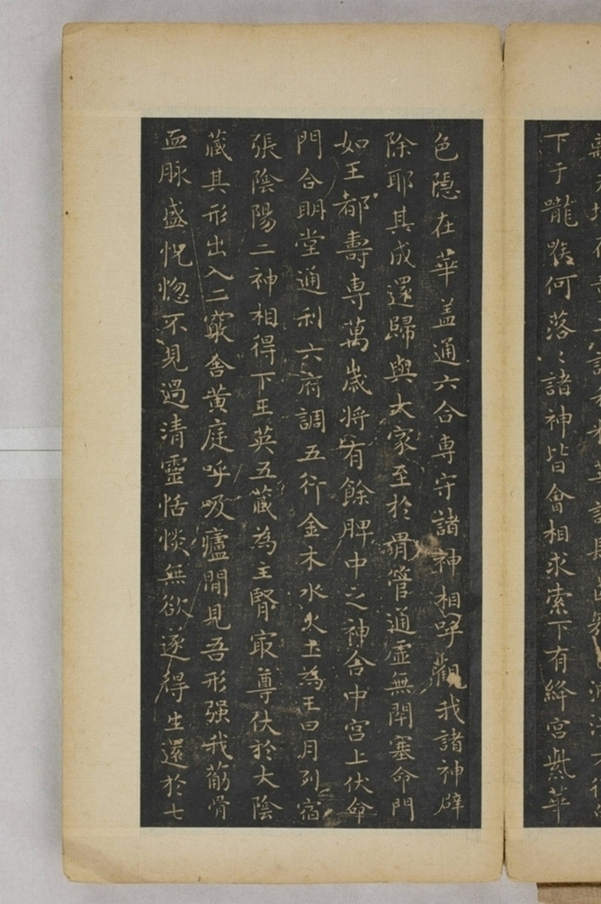 下于嚨喉何落〻諸神皆會相求索下有絳宮紫華
色隱在華盖通六合専守諸神相呼觀我諸神辟
除耶其成還歸與大家至於胃管通虛無閉塞命門
如王都壽専萬歲将有餘脾中之神舍中宮上伏命
門合明堂通利六府調五行金木水火土為王日月列宿
張陰陽二神相得下王英五藏為主腎冣尊伏於大陰
藏其形出入二竅舍黃庭呼吸廬間見吾形强我筋骨
血脈盛恍惚不見過清靈恬惔無欲遂得生還於七